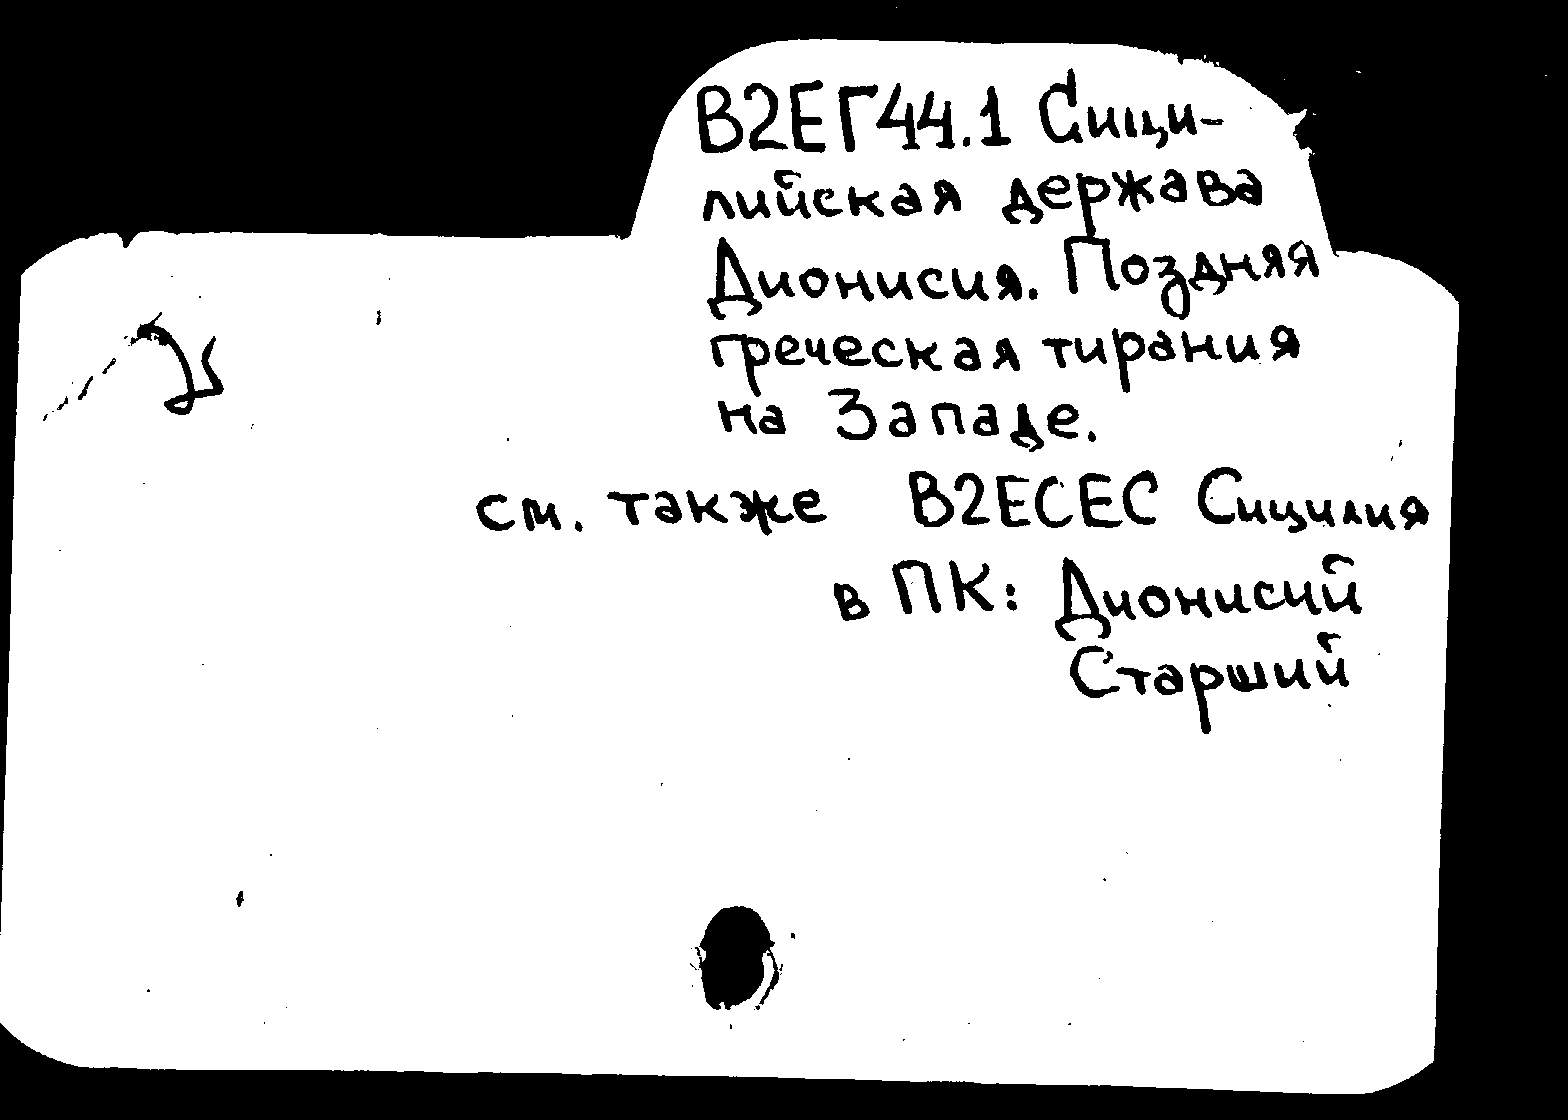 В2ЕГ44.1 Сици-
лийская держава
Дионисия. Поздняя
греческая тирания
на Западе.
см. также В2ЕСЕС Сицилия
в ПК: Дионисий
Старший